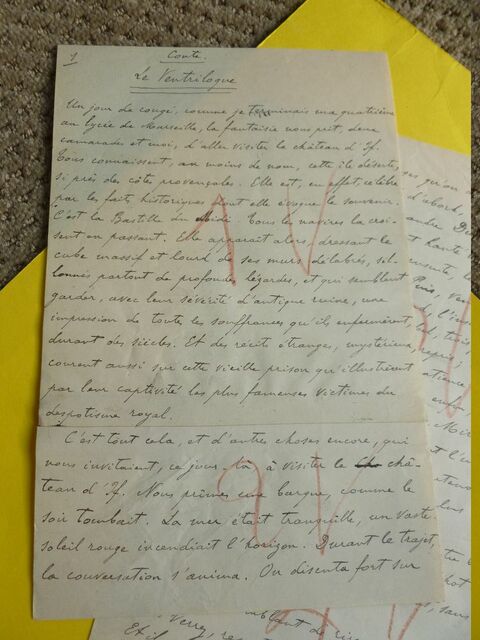 1
Conte.
Le Ventriloque
Un jour de congé, comme je terminais ma quatrième
au lycée de Marseille, la fantaisie nous prit, deux
camarades et moi, d'aller visiter le château d'If.
Tous connaissent, au moins de nom, cette île déserte,
si près des côtes provençales. Elle est, en effet, célèbre
par les faits historiques dont elle évoque le souvenir.
C'est la Bastille du Midi. Tous les navires la croi-
sent en passant. Elle apparaît alors, dressant le
cube massif et lourd de ses murs délabrés, sil-
lonnés partout de profondes lézardes, et qui semblent
garder, avec leur sévérité d'antique ruine, une
impression de toutes les souffrances qu'ils enfermèrent,
durant des siècles. Et des récits étranges, mystérieux,
courent aussi sur cette vieille prison qu'illustrèrent
par leur captivité les plus fameuses victimes du
despotisme royal.
C'est tout cela, et d'autres choses encore, qui
nous invitaient, ce jour-là à visiter le châ-
teau d'If. Nous prîmes une barque, comme le
soir tombait. La mer était tranquille, un vaste
soleil rouge incendiait l'horizon. Durant le trajet,
la conversation s'anima. On discuta fort sur
ses qu'on
d'abord,